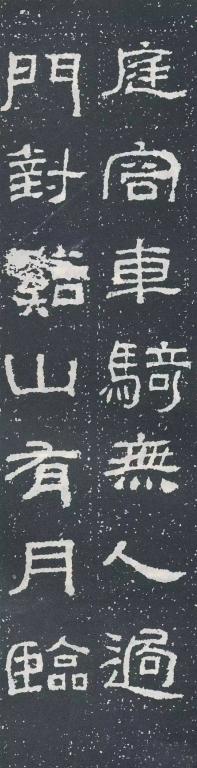 庭容車騎無人過
門對谿山有月臨